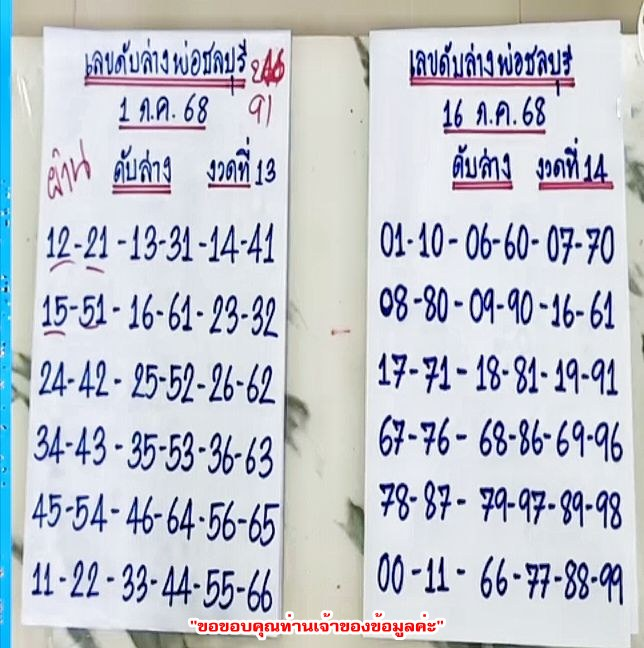 เลขดับล่างพ่อชลบุรี
1 ก.ค. 68
91
ผ่าน ดับล่าง งวดที่ 13
12-21-13-31-14-41
15-51-16-61-23-32
24-42-25-52-26-62
34-43-35-53-36-63
45-54-46-64-56-65
11-22-33-44-55-66
เลขดับล่างพ่อชลบุรี
16 ก.ค. 68
ดับล่าง งวดที่ 14
01-10-06-60-07-70
08-80-09-90-16-61
17-71-18-81-19-91
67-76-68-86-69-96
78-87-79-97-89-98
00-11-66-77-88-99
"ขอขอบคุณท่านเจ้าของข้อมูลค่ะ"